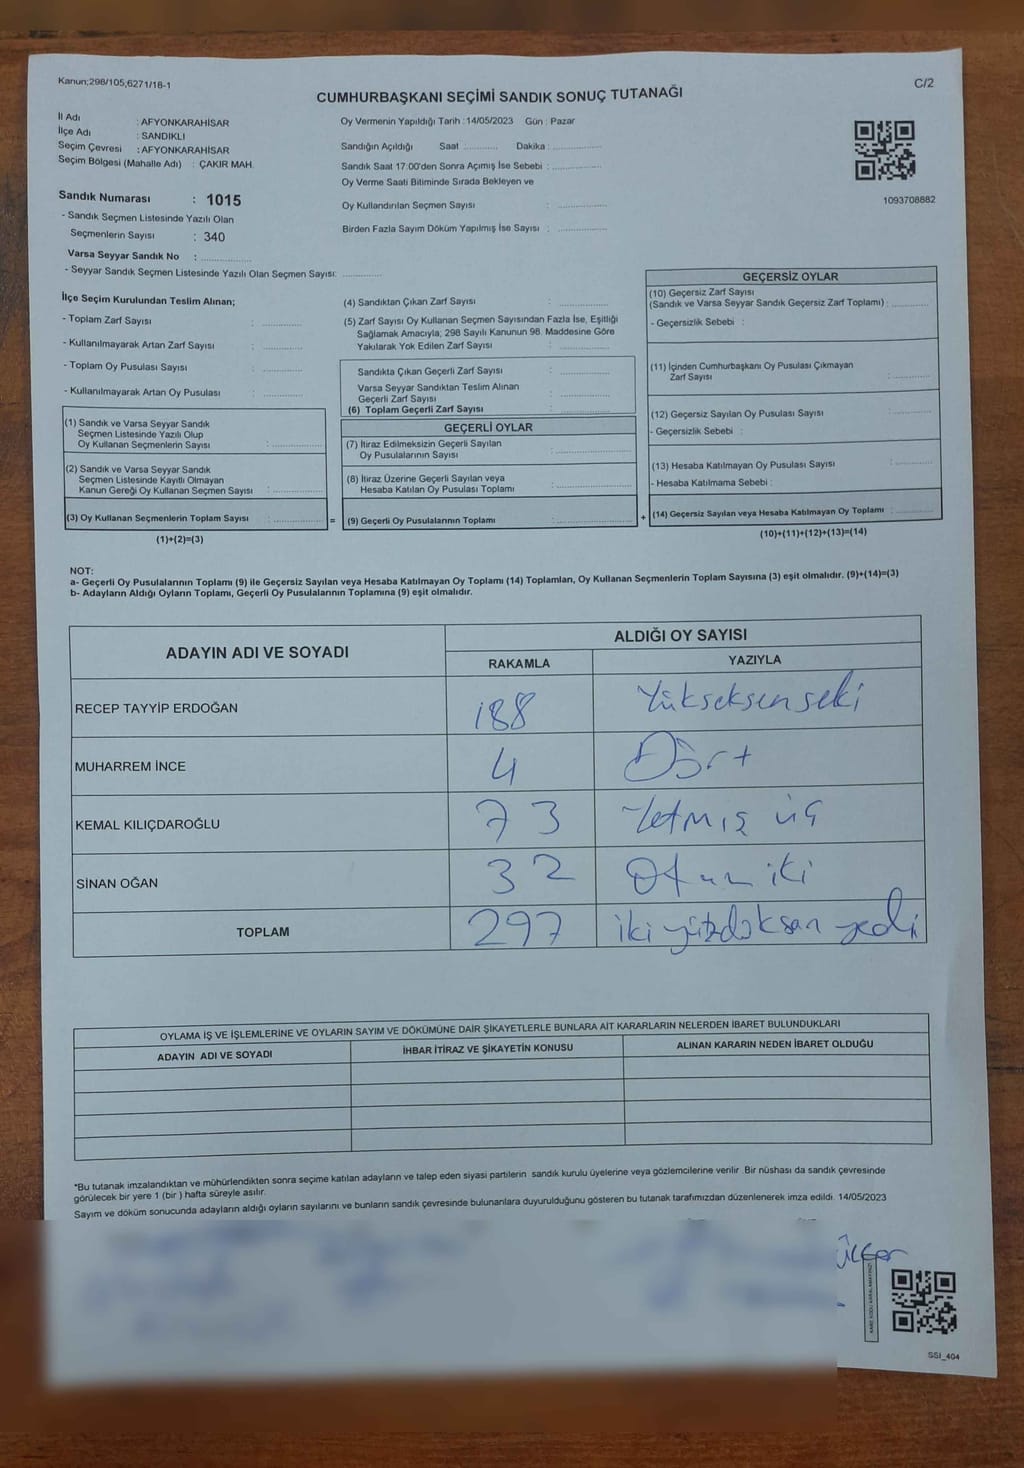 Kanun;298/105,6271/18-1
C/2
CUMHURBAŞKANI SEÇİMİ SANDIK SONUÇ TUTANAĞI
İl Adı : AFYONKARAHİSAR
İlçe Adı : SANDIKLI
Seçim Çevresi : AFYONKARAHİSAR
Seçim Bölgesi (Mahalle Adı) : ÇAKIR MAH.
Sandık Numarası : 1015
- Sandık Seçmen Listesinde Yazılı Olan
Seçmenlerin Sayısı : 340
Varsa Seyyar Sandık No : ..............
- Seyyar Sandık Seçmen Listesinde Yazılı Olan Seçmen Sayısı: ............
Oy Vermenin Yapıldığı Tarih :14/05/2023 Gün : Pazar
Sandığın Açıldığı Saat ............ Dakika : ..............
Sandık Saat 17:00'den Sonra Açımış İse Sebebi : ..............
Oy Verme Saati Bitiminde Sırada Bekleyen ve
Oy Kullandırılan Seçmen Sayısı : ..............
Birden Fazla Sayım Döküm Yapılmış İse Sayısı : ..............
1093708882
İlçe Seçim Kurulundan Teslim Alınan;
- Toplam Zarf Sayısı : ............
- Kullanılmayarak Artan Zarf Sayısı : ............
- Toplam Oy Pusulası Sayısı : ............
- Kullanılmayarak Artan Oy Pusulası : ............
(1) Sandık ve Varsa Seyyar Sandık
Seçmen Listesinde Yazılı Olup
Oy Kullanan Seçmenlerin Sayısı : ..............
(2) Sandık ve Varsa Seyyar Sandık
Seçmen Listesinde Kayıtlı Olmayan
Kanun Gereği Oy Kullanan Seçmen Sayısı : ..............
(3) Oy Kullanan Seçmenlerin Toplam Sayısı : ..............
(1)+(2)=(3)
=
(4) Sandıktan Çıkan Zarf Sayısı : ..............
(5) Zarf Sayısı Oy Kullanan Seçmen Sayısından Fazla İse, Eşitliği
Sağlamak Amacıyla; 298 Sayılı Kanunun 98. Maddesine Göre
Yakılarak Yok Edilen Zarf Sayısı : ..............
Sandıkta Çıkan Geçerli Zarf Sayısı : ..............
Varsa Seyyar Sandıktan Teslim Alınan
Geçerli Zarf Sayısı : ..............
(6) Toplam Geçerli Zarf Sayısı : ..............
GEÇERLİ OYLAR
(7) İtiraz Edilmeksizin Geçerli Sayılan
Oy Pusulalarının Sayısı : ..............
(8) İtiraz Üzerine Geçerli Sayılan veya
Hesaba Katılan Oy Pusulası Toplamı : ..............
(9) Geçerli Oy Pusulalarının Toplamı : ..............
+
GEÇERSİZ OYLAR
(10) Geçersiz Zarf Sayısı
(Sandık ve Varsa Seyyar Sandık Geçersiz Zarf Toplamı) : ............
- Geçersizlik Sebebi :
(11) İçinden Cumhurbaşkanı Oy Pusulası Çıkmayan
Zarf Sayısı : ............
(12) Geçersiz Sayılan Oy Pusulası Sayısı : ............
- Geçersizlik Sebebi :
(13) Hesaba Katılmayan Oy Pusulası Sayısı : ............
- Hesaba Katılmama Sebebi :
(14) Geçersiz Sayılan veya Hesaba Katılmayan Oy Toplamı : ............
(10)+(11)+(12)+(13)=(14)
NOT:
a- Geçerli Oy Pusulalarının Toplamı (9) ile Geçersiz Sayılan veya Hesaba Katılmayan Oy Toplamı (14) Toplamları, Oy Kullanan Seçmenlerin Toplam Sayısına (3) eşit olmalıdır. (9)+(14)=(3)
b- Adayların Aldığı Oyların Toplamı, Geçerli Oy Pusulalarının Toplamına (9) eşit olmalıdır.
ADAYIN ADI VE SOYADI ALDIĞI OY SAYISI
RAKAMLA YAZIYLA
RECEP TAYYİP ERDOĞAN 188 Yükseksenseki
MUHARREM İNCE 4 Dört
KEMAL KILIÇDAROĞLU 73 Yetmiş üç
SİNAN OĞAN 32 Otuz iki
TOPLAM 297 iki yüzdoksan yedi
OYLAMA İŞ VE İŞLEMLERİNE VE OYLARIN SAYIM VE DÖKÜMÜNE DAİR ŞİKAYETLERLE BUNLARA AİT KARARLARIN NELERDEN İBARET BULUNDUKLARI
ADAYIN ADI VE SOYADI İHBAR İTİRAZ VE ŞİKAYETİN KONUSU ALINAN KARARIN NEDEN İBARET OLDUĞU
*Bu tutanak imzalandıktan ve mühürlendikten sonra seçime katılan adayların ve talep eden siyasi partilerin sandık kurulu üyelerine veya gözlemcilerine verilir. Bir nüshası da sandık çevresinde
görülecek bir yere 1 (bir ) hafta süreyle asılır.
Sayım ve döküm sonucunda adayların aldığı oyların sayılarını ve bunların sandık çevresinde bulunanlara duyurulduğunu gösteren bu tutanak tarafımızdan düzenlenerek imza edildi. 14/05/2023
SSI_404